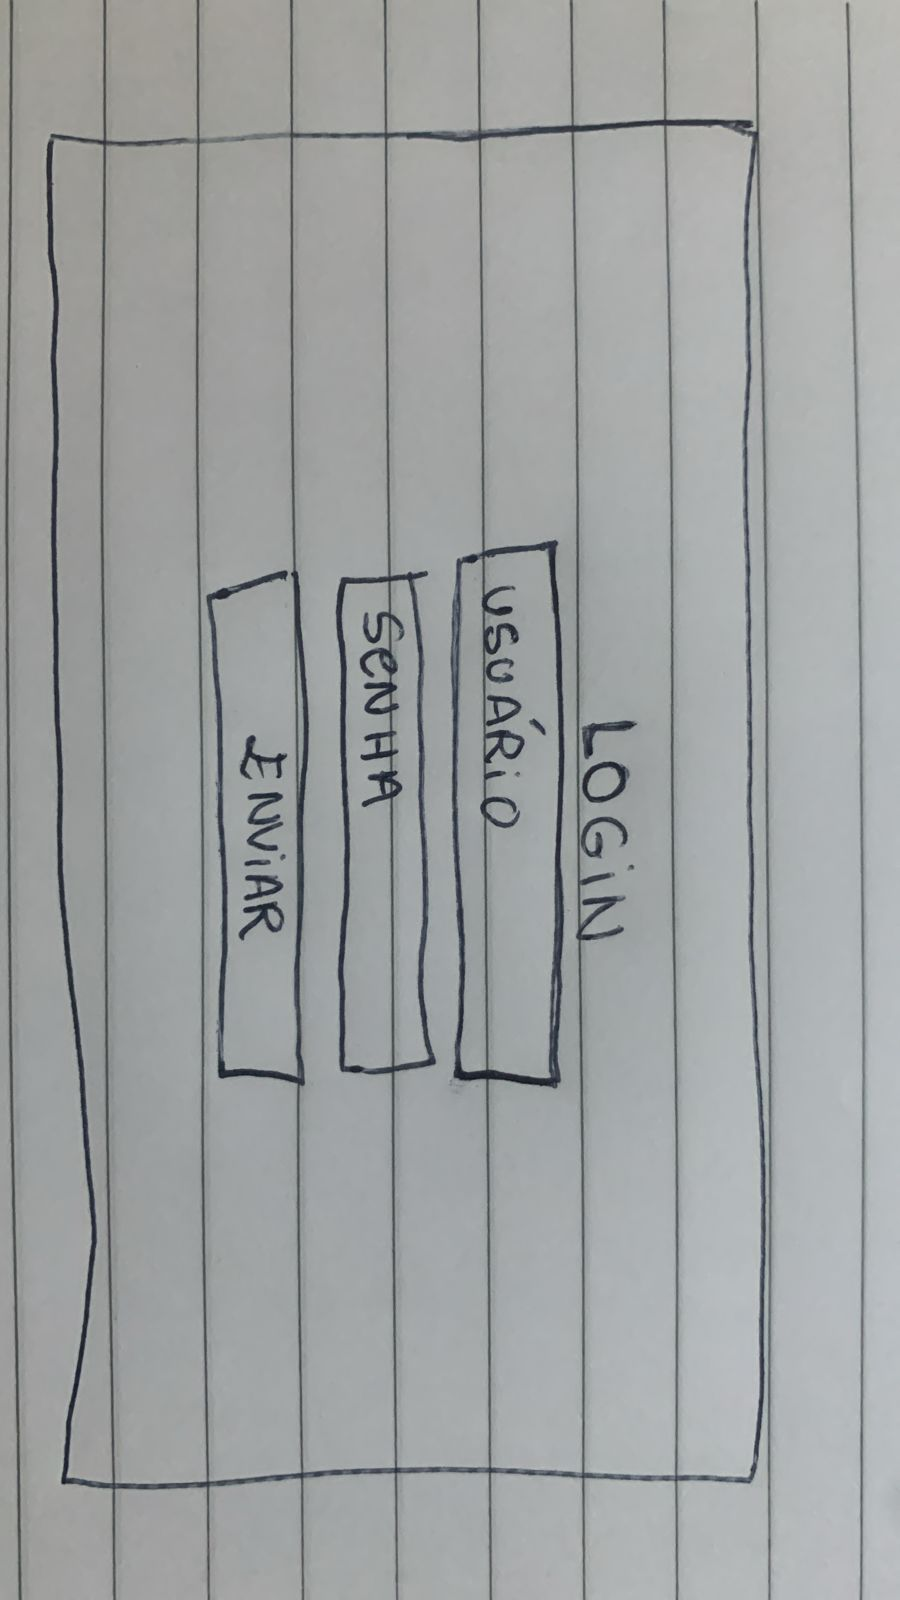 LOGiN
USUÁRiO
SeNHA
ENViAR